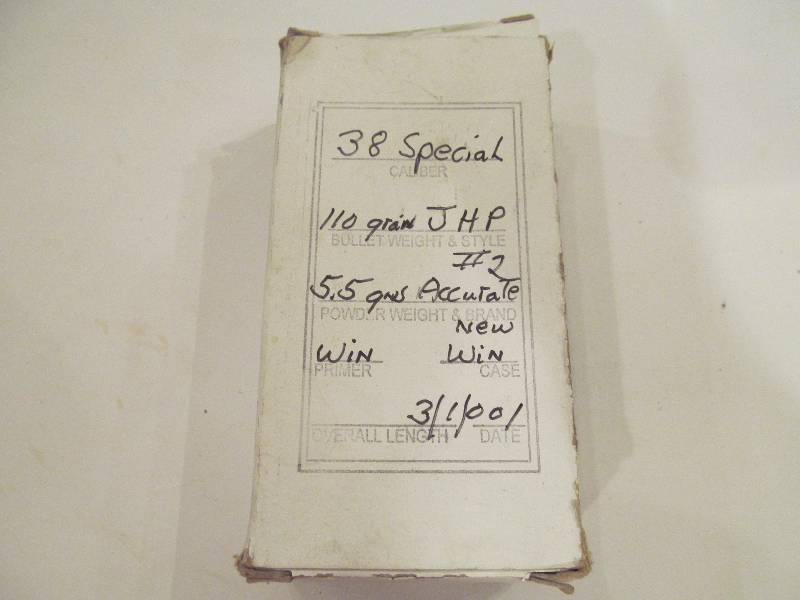 38 Special
CALIBER
110 grain JHP
BULLET WEIGHT & STYLE
#2
5.5 gns Accurate
POWDER WEIGHT & BRAND
New
WIN WIN
PRIMER CASE
3/1/001
OVERALL LENGTH DATE